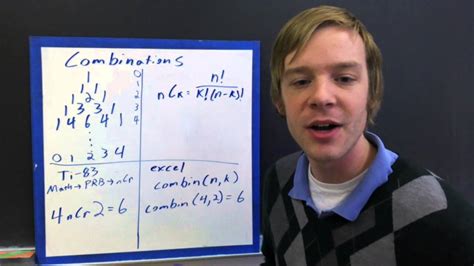 Combinations
1 0
1 1 1
1 2 1 2
1 3 3 1 3
1 4 6 4 1 4
⋮
0 1 2 3 4
nCk = n! / k!(n-k)!
Ti-83
Math→PRB→nCr
4 nCr 2 = 6
excel
combin(n,k)
combin(4,2) = 6